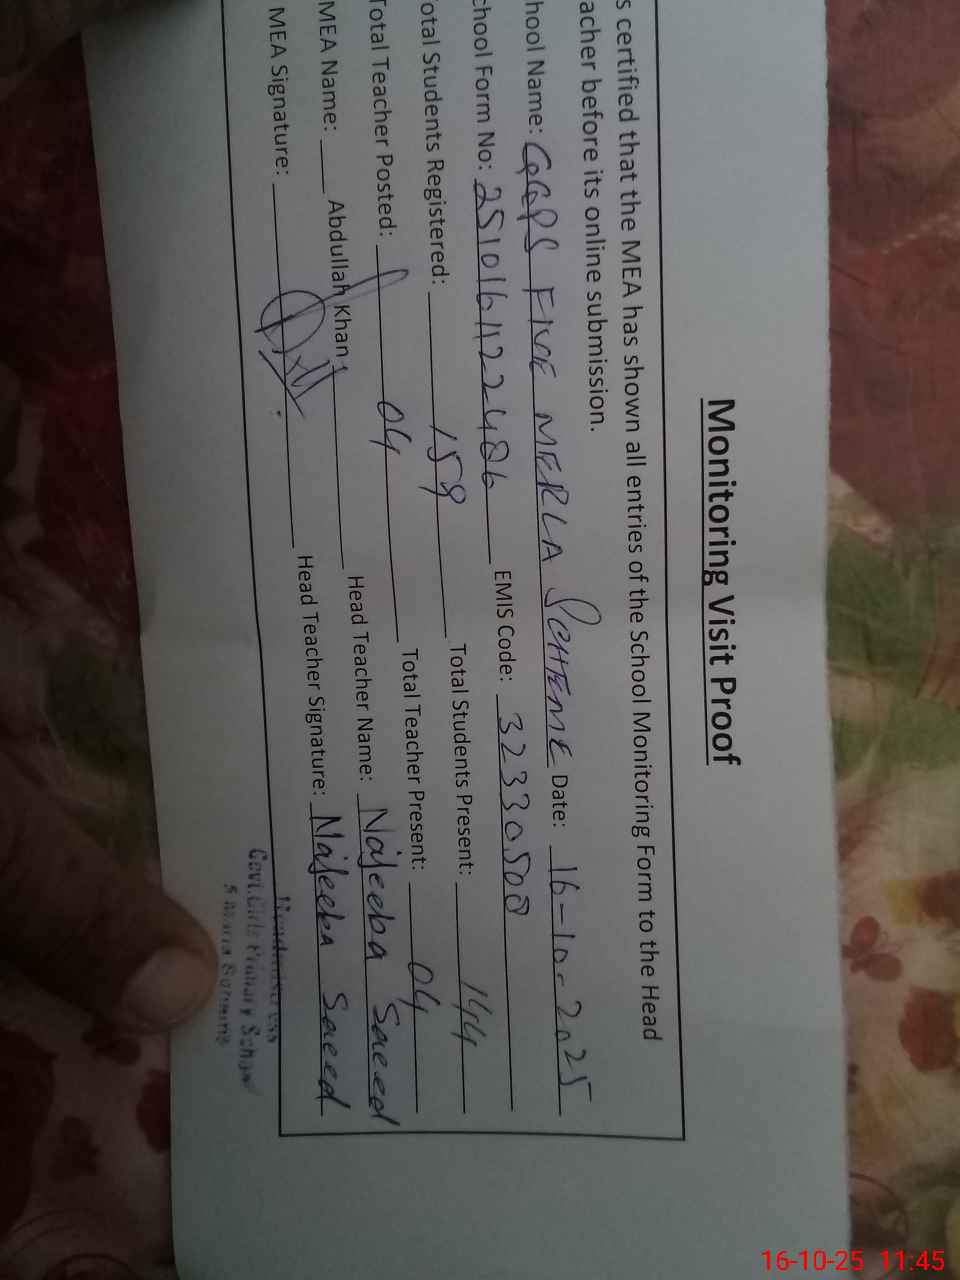 Monitoring Visit Proof
s certified that the MEA has shown all entries of the School Monitoring Form to the Head
acher before its online submission.
hool Name: GGPS FIVE MERLA SCHEME Date: 16-10-2025
chool Form No: 2510161122486 EMIS Code: 32330508
otal Students Registered: 159 Total Students Present: 144
Total Teacher Posted: 04 Total Teacher Present: 04
MEA Name: Abdullah Khan Head Teacher Name: Najeeba Saeed
MEA Signature: Head Teacher Signature: Najeeba Saeed
Headmistress
Govt. Girls Primary School
16-10-25 11:45